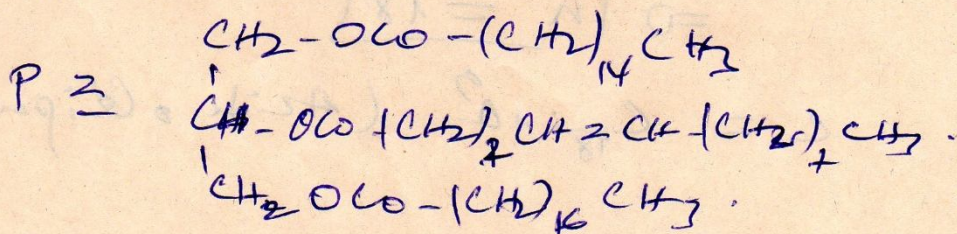 CH2-OCO-(CH2)14CH3
P = CH-OCO-(CH2)7CH=CH-(CH2)7CH3.
CH2OCO-(CH2)16CH3.